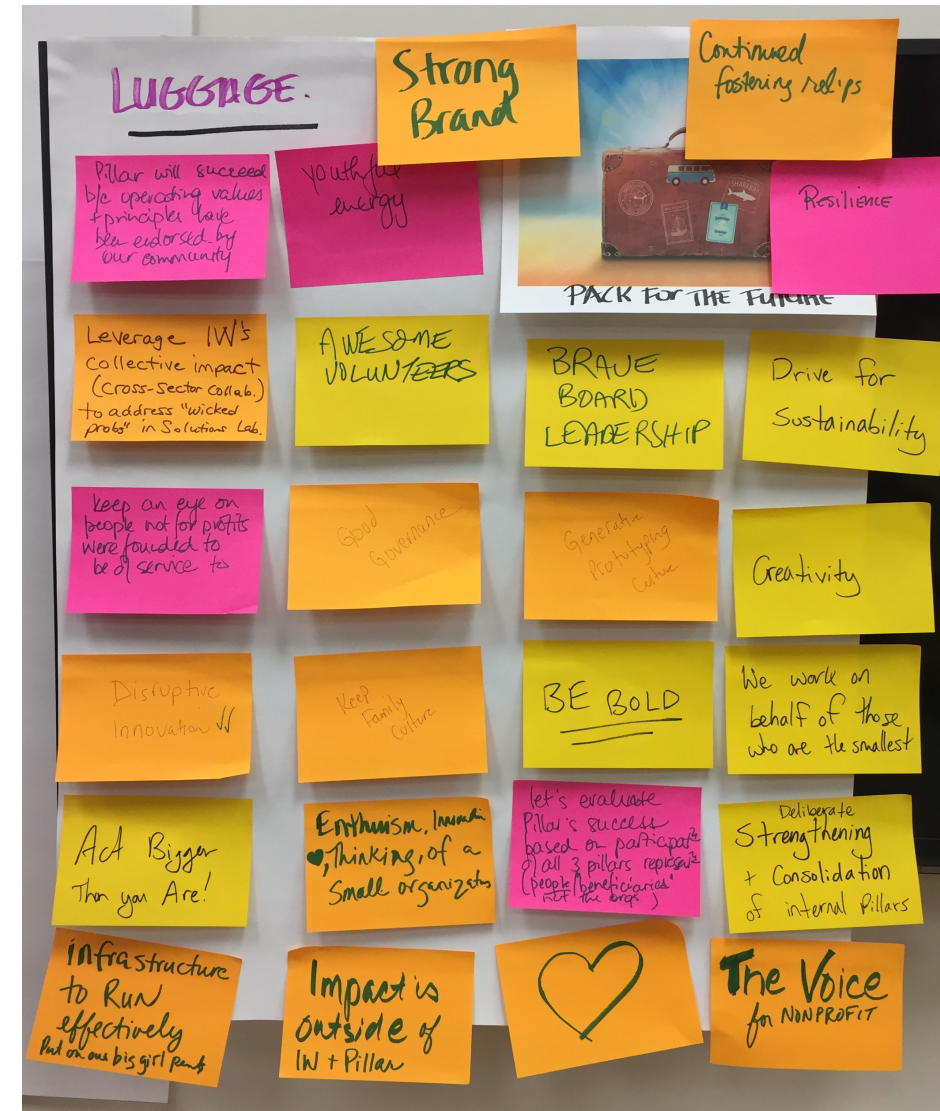 LUGGAGE.
Strong
Brand
Continued
fostering relips
Pillar will succeed
b/c operating values
+ principles have
been endorsed by
our community
youthful
energy
SHARKS!
Resilience
PACK FOR THE FUTURE
Leverage IW's
collective impact
(cross-sector collab.)
to address "wicked
probs" in Solutions Lab.
AWESOME
VOLUNTEERS
BRAVE
BOARD
LEADERSHIP
Drive for
Sustainability
keep an eye on
people not for profits
were founded to
be of service to
Good
Governance
Generative
Prototyping
Culture
Creativity
Disruptive
Innovation
Keep
Family
Culture
BE BOLD
We work on
behalf of those
who are the smallest
Act Bigger
Than you Are!
Enthusism,
Thinking, of a
Small organizatos
let's evaluate
Pillar's success
based on
of all 3 pillars
(people/"beneficiaries"
not the orgs)
Deliberate
Strengthening
+ Consolidation
of internal Pillars
infrastructure
to RUN
effectively
Put on our big girl pants
Impact is
outside of
IW + Pillar
The Voice
for NONPROFIT